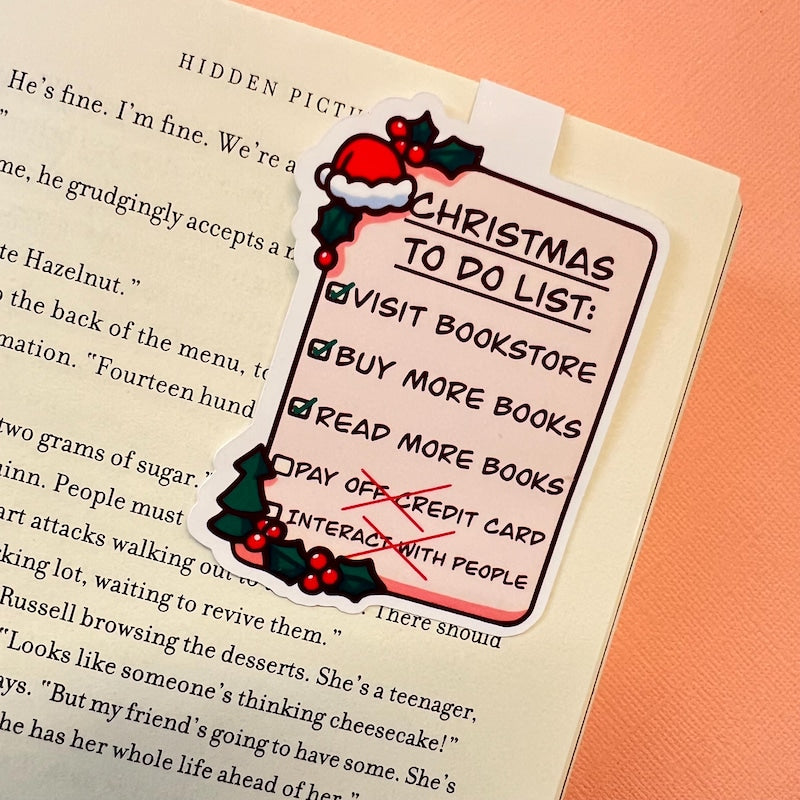 HIDDEN
He's fine. I'm fine. We're a
"
me, he grudgingly accepts a
te Hazelnut."
o the back of the menu,
mation. "Fourteen
two grams of sugar."
uinn. People must
art attacks walking out to
king lot, waiting to revive them." There should
Russell browsing the desserts. She's a teenager,
"Looks like someone's thinking cheesecake!"
ays. "But my friend's going to have some. She's
he has her whole life ahead of her."
CHRISTMAS
TO DO LIST:
VISIT BOOKSTORE
BUY MORE BOOKS
READ MORE BOOKS
PAY OFF CREDIT CARD
INTERACT WITH PEOPLE